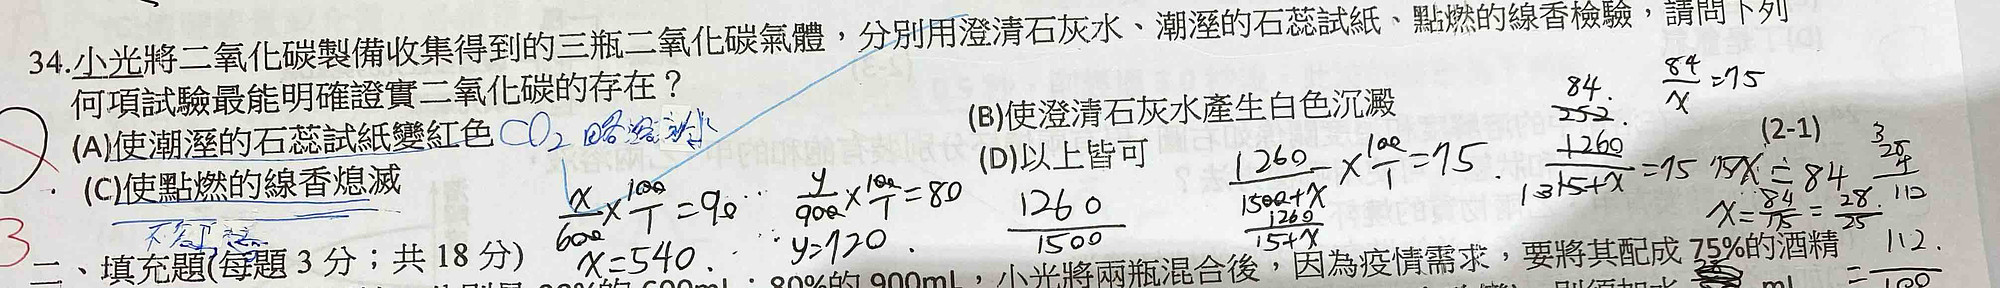 34.小光將二氧化碳製備收集得到的三瓶二氧化碳氣體，分別用澄清石灰水、潮溼的石蕊試紙、點燃的線香檢驗，請問下列
何項試驗最能明確證實二氧化碳的存在？
(A)使潮溼的石蕊試紙變紅色 CO2 略溶於水
(B)使澄清石灰水產生白色沉澱
(C)使點燃的線香熄滅
(D)以上皆可
(2-1)
x/600 × 100/1 = 90
x=540.
y/900 × 100/1 = 80
y=720.
1260/1500
1260/1500+x × 100/1 = 75.
1260/15+x
84.
252.
1260/15+x = 75
84/x = 75
75x = 84
x = 84/75 = 28/25
112
= 112/100
3
二、填充題(每題 3 分；共 18 分)
80%的 900mL，小光將兩瓶混合後，因為疫情需求，要將其配成 75%的酒精